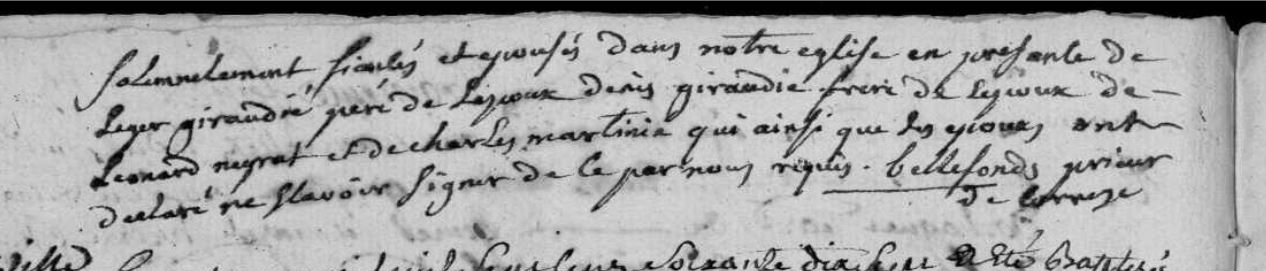 solemnelement fiancés et epousés dans notre eglise en presante de
Leger giraudié pere de Lepoux denis giraudie frere de Lepoux de
Leonard negrat et de charles martinie qui ainsi que les epoues ont
declaré ne scavoir signer de ce par nous requis . bellefonds prieur
de correze
Sept Cent soixante dix Sept a été Baptisé